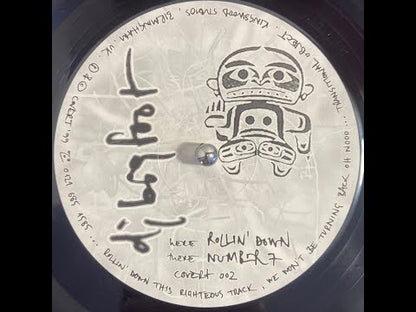 HERE ROLLIN' DOWN
THERE NUMBER 7
COVERT 002
ROLLIN' DOWN THIS RIGHTEOUS TRACK, WE WON'T BE TURNING BACK OH NOOO... TRANSITIONAL OBJECT. KINGSWOOD STUDIOS, BIRMINGHAM UK. Ⓟ © COVERT '99